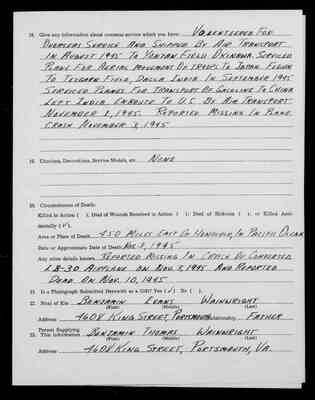 18. Give any information about overseas service which you have: VOLENTEERED FOR
OVERSEAS SERVICE AND SHIPPED BY AIR TRANSPORT
IN AUGUST 1945 TO YONTAN FIELD OKINAWA. SERVICED
PLANES FOR AERIAL MOVEMENT OF TROOPS TO JAPAN. FLOWN
TO TEZGAON FIELD, DACCA INDIA IN SEPTEMBER 1945
SERVICED PLANES FOR TRANSPORT OF GASOLINE TO CHINA
LEFT INDIA ENROUTE TO U.S. BY AIR TRANSPORT
NOVEMBER 1, 1945. REPORTED MISSING IN PLANE
CRASH NOVEMBER 3, 1945
19. Citations, Decorations, Service Medals, etc. NONE
20. Circumstances of Death:
Killed in Action ( ), Died of Wounds Received in Action ( ); Died of Sickness ( ); or Killed Acci-
dentally (✓).
Area or Place of Death 450 MILES EAST OF HONOLULU, IN PACIFIC OCEAN
Date or Approximate Date of Death NOV. 3, 1945
Any other details known REPORTED MISSING IN CRASH OF CONVERTED
LB-30 AIRPLANE ON NOV. 3, 1945 AND REPORTED
DEAD ON NOV. 10, 1945
21. Is a Photograph Submitted Herewith as a Gift? Yes (✓) No ( ).
22. Next of Kin BENJAMIN EVANS WAINWRIGHT
(First) (Middle) (Last)
Address 4608 KING STREET, PORTSMOUTH Relationship FATHER
23. Person Supplying This Information BENJAMIN THOMAS WAINWRIGHT
(First) (Middle) (Last)
Address 4608 KING STREET, PORTSMOUTH, VA.